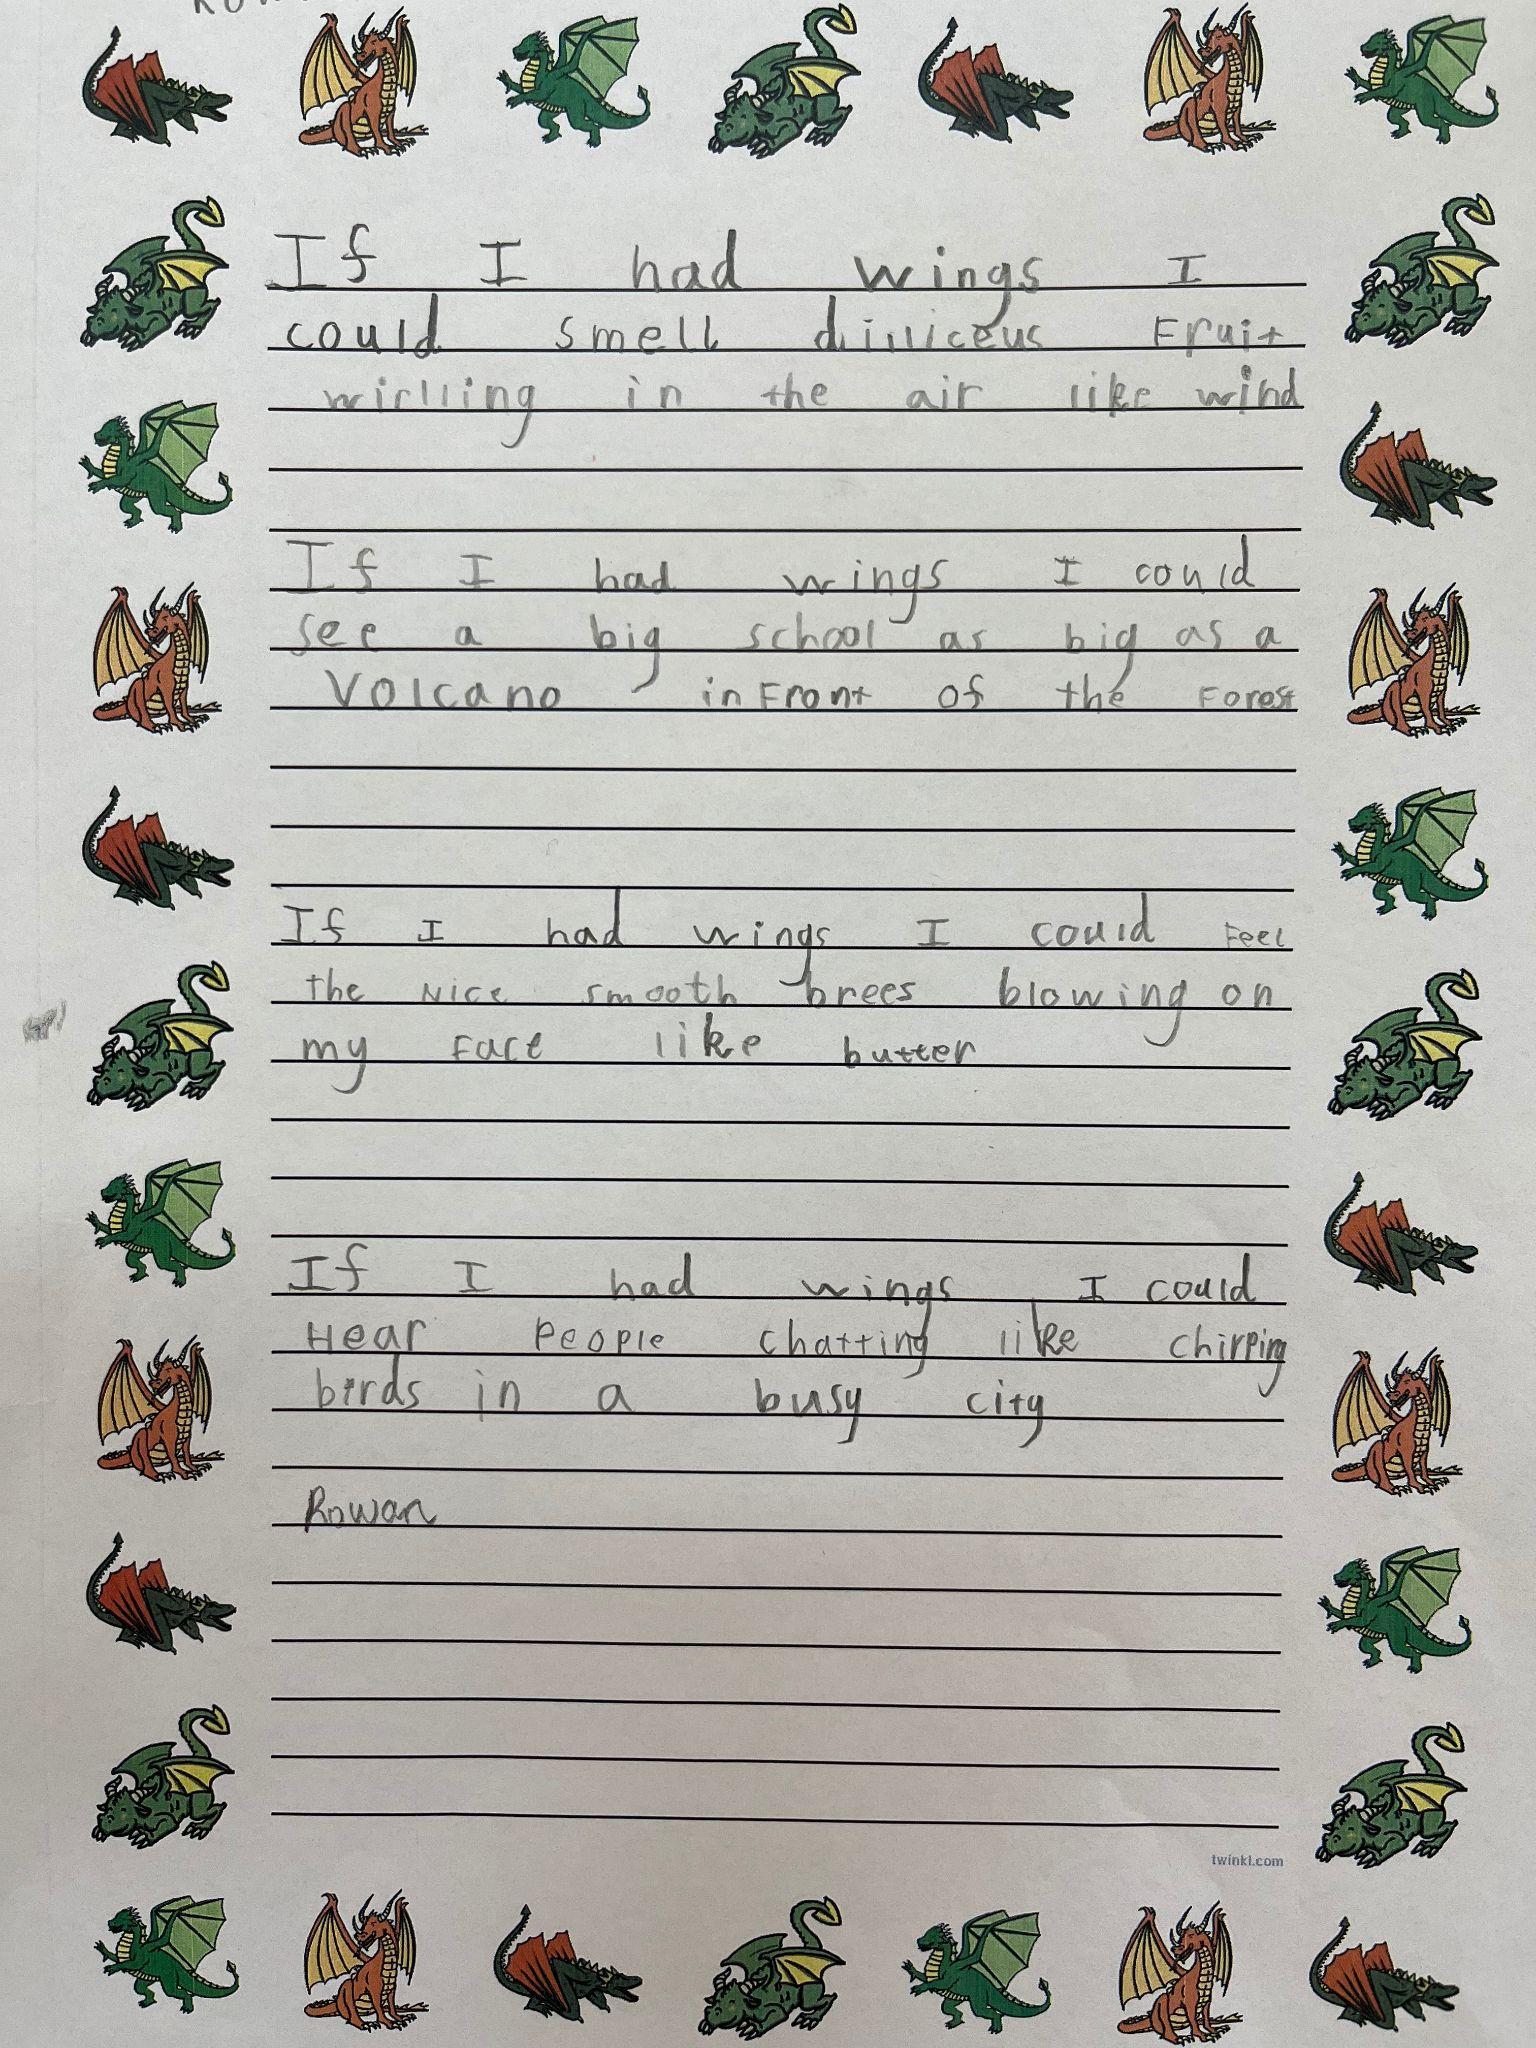 If I had wings I
could smell diiliceus Fruit
wirlling in the air like wind
If I had wings I could
see a big school as big as a
Volcano in Front of the Forest
If I had wings I could Feel
the Nice smooth brees blowing on
my Face like butter
If I had wings I could
Hear People chatting like chirping
birds in a busy city
Rowan
twinkl.com